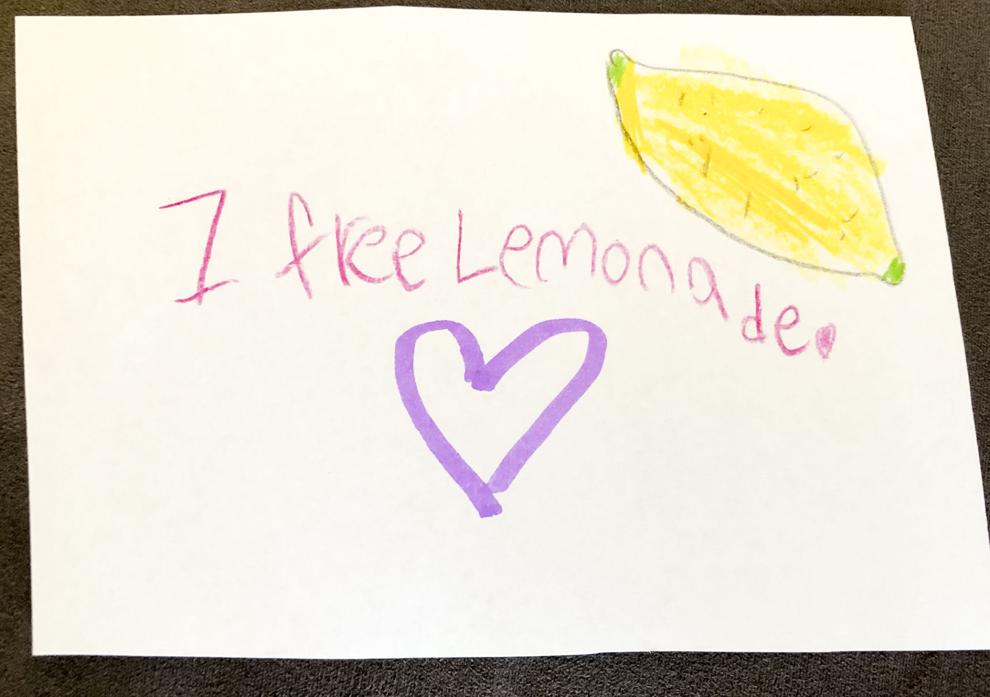 1 free Lemonade.